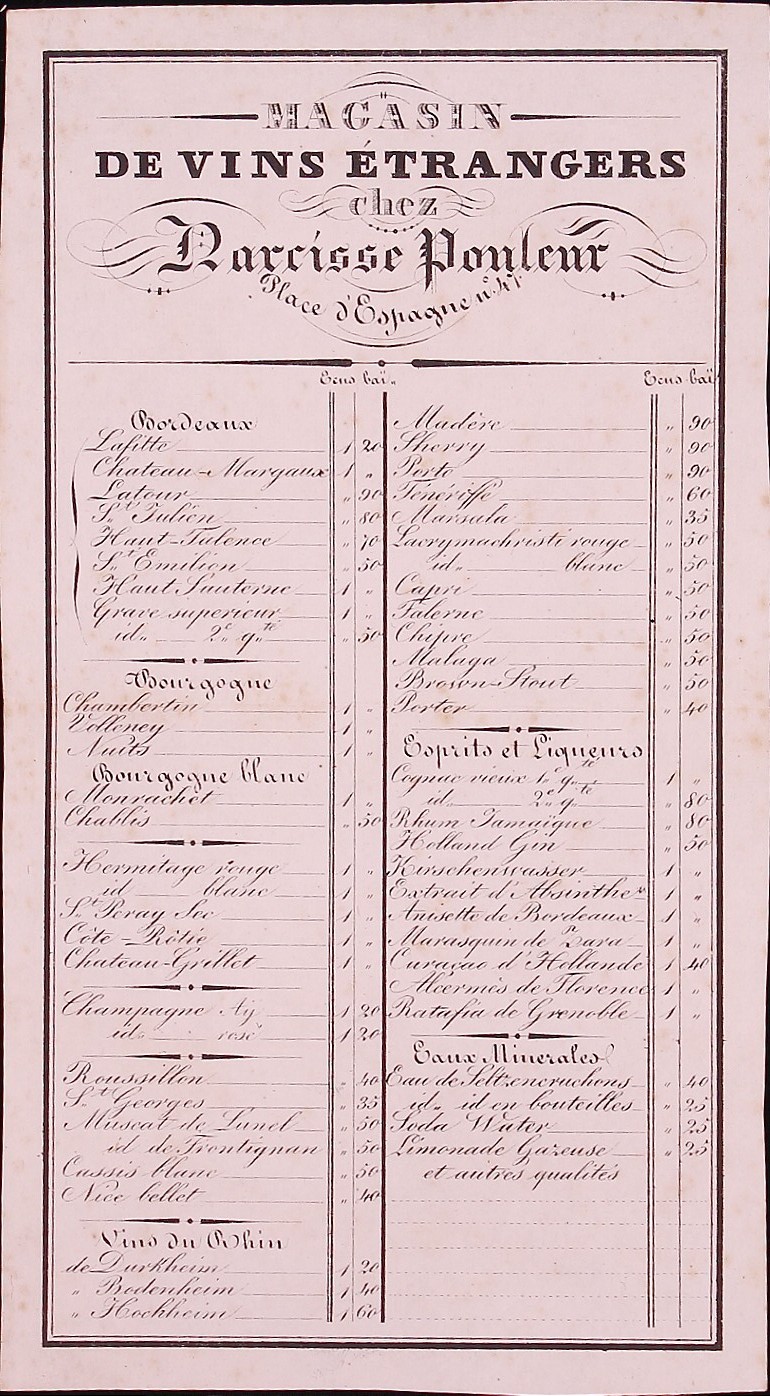 MAGASIN
DE VINS ÉTRANGERS
chez
Narcisse Pouleur
Place d'Espagne n° 41.
Ecus baï„
Bordeaux
Lafitte 1 20
Chateau-Margaux 1 „
Latour „ 90
S„t Julien „ 80
Haut-Talence „ 70
S„t Emilion „ 50
Haut Sauterne 1 „
Grave superieur 1 „
id„ 2e„ q„té „ 50
Bourgogne
Chambertin 1 „
Volleney 1 „
Nuits 1 „
Bourgogne blanc
Monrachet 1 „
Chablis „ 50
Hermitage rouge 1 „
id blanc 1 „
S„t Peray Sec 1 „
Côte-Rôtie 1 „
Chateau-Grillet 1 „
Champagne Aÿ 1 20
id„ rosé 1 20
Roussillon „ 40
S„t Georges „ 35
Muscat de Lunel „ 50
id de Frontignan „ 50
Cassis blanc „ 50
Nice bellet „ 40
Vins du Rhin
de Durkheim 1 20
„ Bodenheim 1 40
„ Hochheim 1 60
Ecus baï
Madère „ 90
Sherry „ 90
Porto „ 90
Ténériffe „ 60
Marsala „ 35
Lacrymachristi rouge „ 50
id„ blanc „ 50
Capri „ 50
Falerne „ 50
Chipre „ 50
Malaga „ 50
Brown-Stout „ 50
Porter „ 40
Esprits et Liqueurs
Cognac vieux 1e q„té 1 „
id„ 2e q„té „ 80
Rhum Jamaïque „ 80
Holland Gin „ 50
Kirschenwasser 1 „
Extrait d'Absinthe 1 „
Anisette de Bordeaux 1 „
Marasquin de Zara 1 „
Curaçao d'Hollande 1 40
Alcermès de Florence 1 „
Ratafia de Grenoble 1 „
Eaux Minerales
Eau de Seltz en cruchons „ 40
id„ id en bouteilles „ 25
Soda Water „ 25
Limonade Gazeuse „ 25
et autres qualités